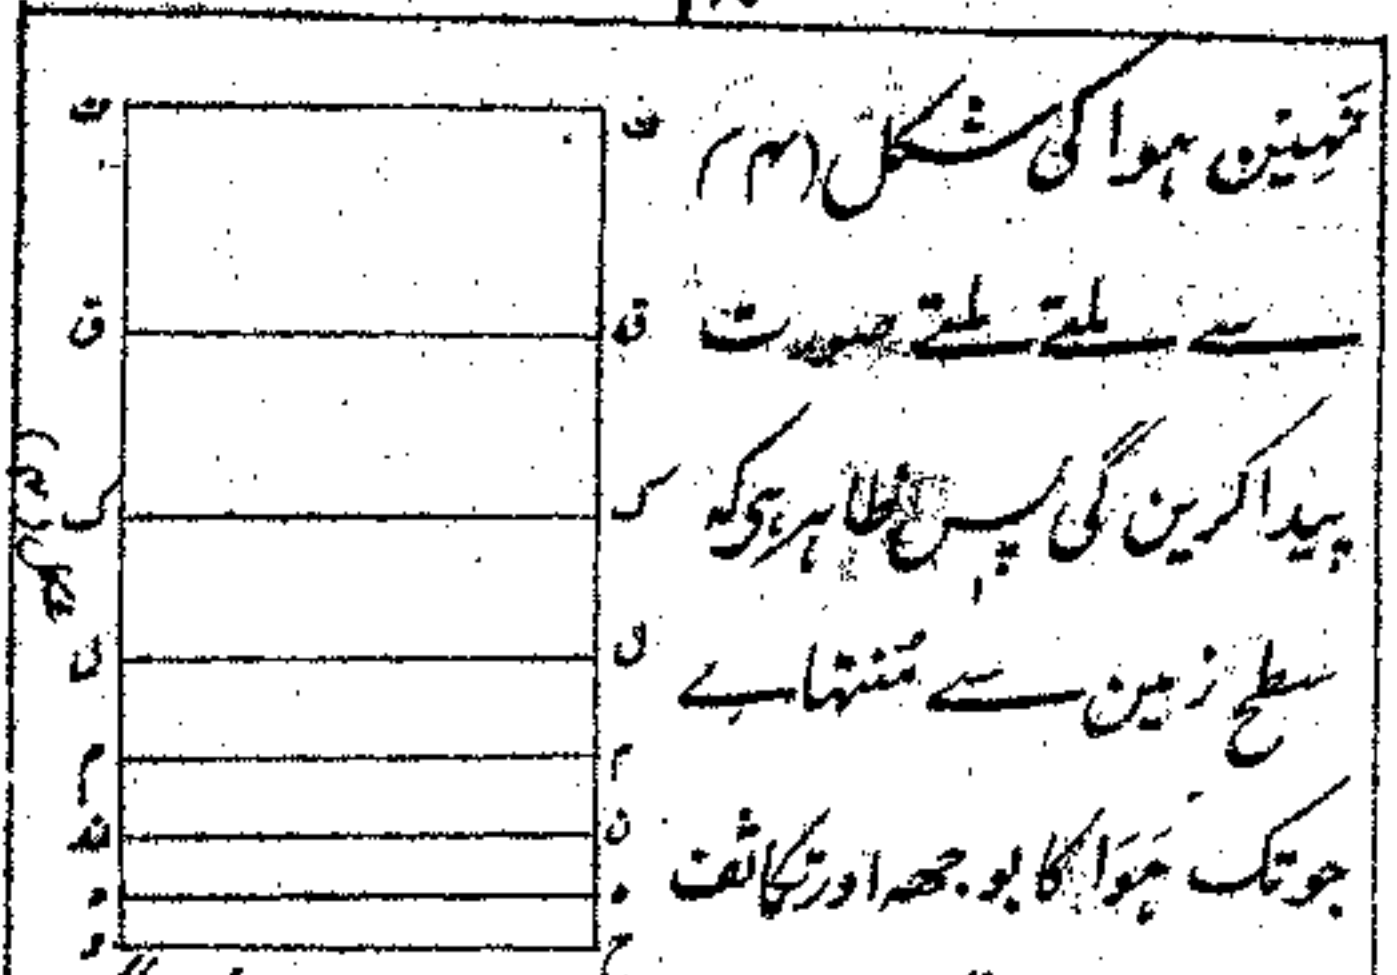 نہین ہوا کی شکل (۴۲
سے ملتے ملتے صورت
پیدا کرین گی پس ظاہر ہی کہ
سطح زمین سے منتہاے
جو تک ہَوَا کا بوجھہ اور تکاثف
ف ف
ق ق
ک ک
ل ل
م م
ن
ہ
ح و